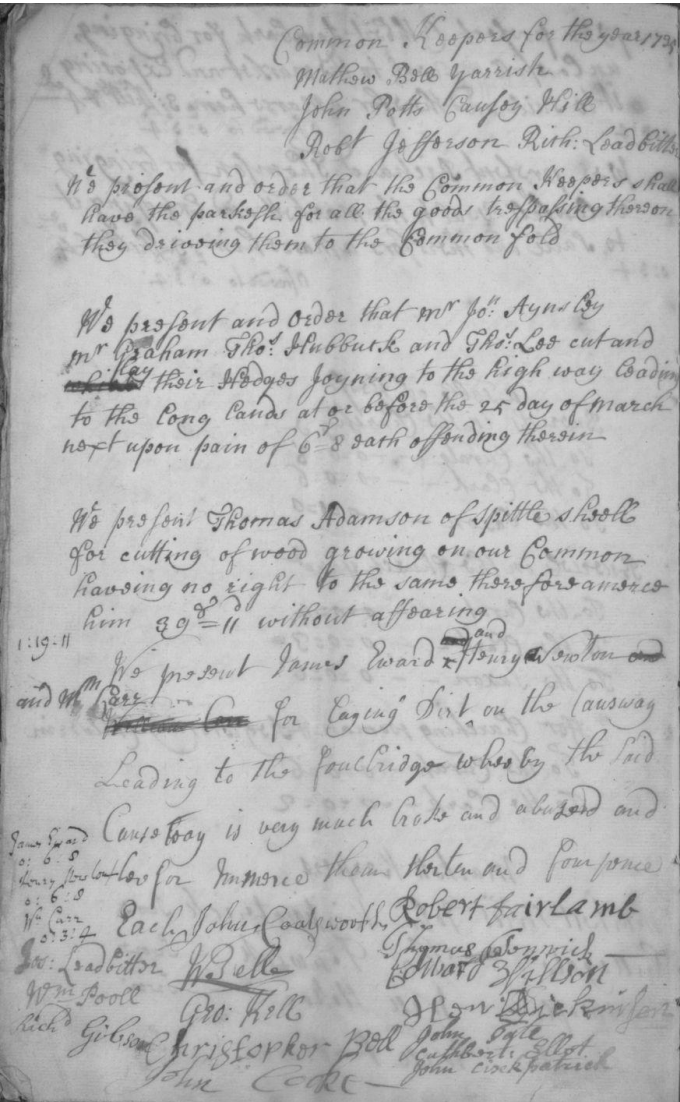 Common Keepers for the year 1735
Mathew Bell Yarrish
John Potts Causey Hill
Robt Jefferson Rich: Leadbitter
We present and order that the Common Keepers shall
have the for all the goods trespassing thereon
they driveing them to the Common fold
We present and order that mr Jon: Aynsley
mr Graham Thos. Hubbuck and Thos: Lee cut and
play their Hedges Joyning to the high way leading
to the Long Lands at or before the 25 day of March
next upon pain of 6s=8 each offending therein
We present Thomas Adamson of Spittle sheell
for cutting of wood growing on our Common
haveing no right to the same therefore amerce
him 39s=11d without affearing
1:19-11
We present James Eward and Henry Newton
and Wm Carr
for Laging Dirt on the Causway
Leading to the whereby the said
Causeway is very much broke and abused and
James Eward
0: 6: 8
Henry Newton
0: 6: 8
Wm Carr
0: 3: 4
for Immerce them and four pence
Each John Coatsworth Robert fairlamb
Thomas Fenwick
Jos: Leadbitter W Bell Edward Willson
Wm Pooll Geo: Kell Hen: Dickinson
Richd Gibson Christopher Bell John Ogle
Cuthbert: Ellot
John Cooke John Cirkpatrick